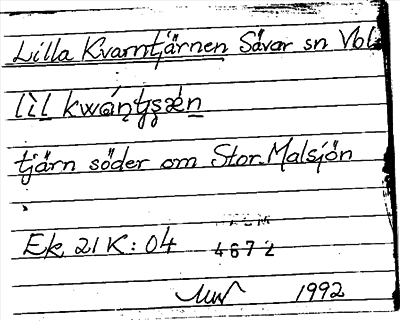 Lilla Kvarntjärnen Sävar sn Vbl.
tjärn söder om Stor-Malsjön
Ek. 21 K: 04
4672
1992